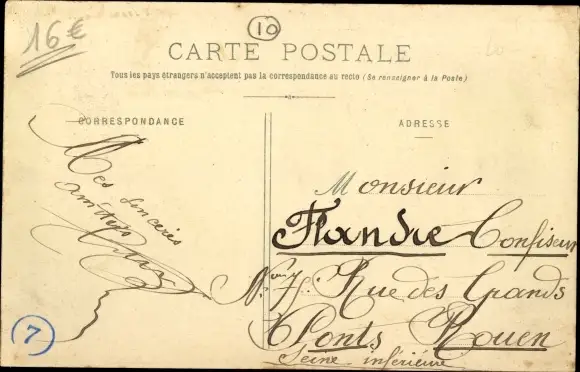 16€
10
CARTE POSTALE
Tous les pays étrangers n'acceptent pas la correspondance au recto (Se renseigner à la Poste)
CORRESPONDANCE
Mes sincères
amitiés
7
ADRESSE
Monsieur
Flandre Confiseur
Rue des Grands
Ponts Rouen
Seine inférieure